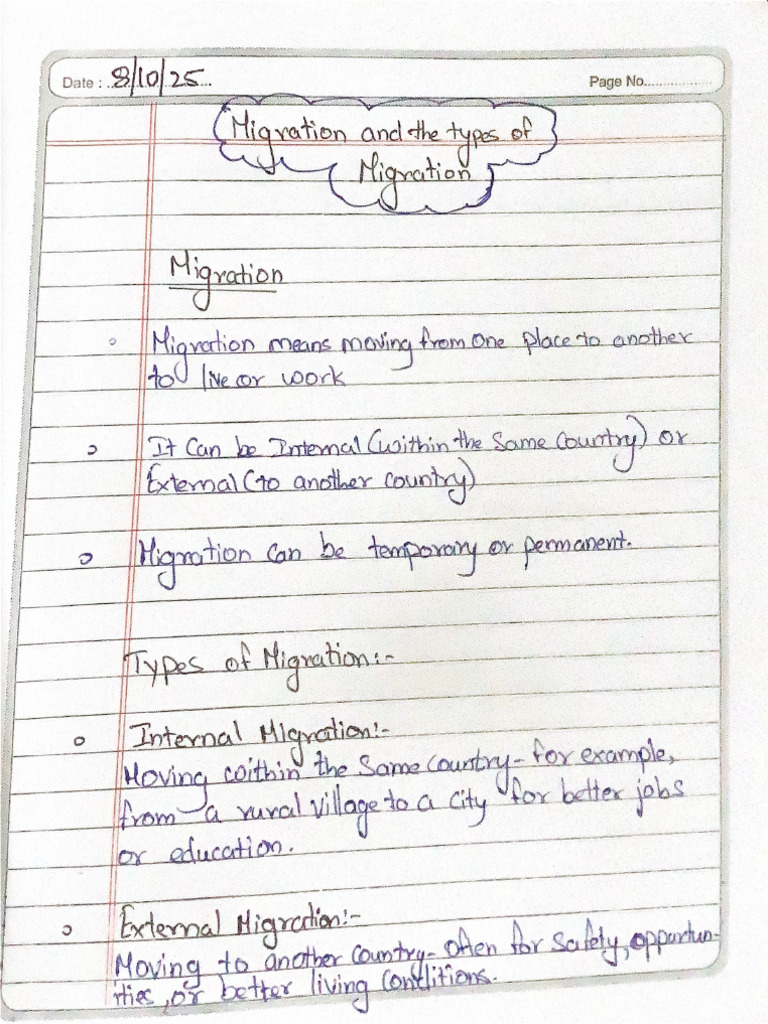 Date : 8/10/25 Page No.
Migration and the types of
Migration
Migration
Migration means moving from one place to another
to live or work
It can be Internal (within the same country) or
External (to another country)
Migration can be temporary or permanent.
Types of Migration:-
Internal Migration:-
Moving within the same country - for example,
from a rural village to a city for better jobs
or education.
External Migration:-
Moving to another country - often for safety, opportun-
ities, or better living conditions.